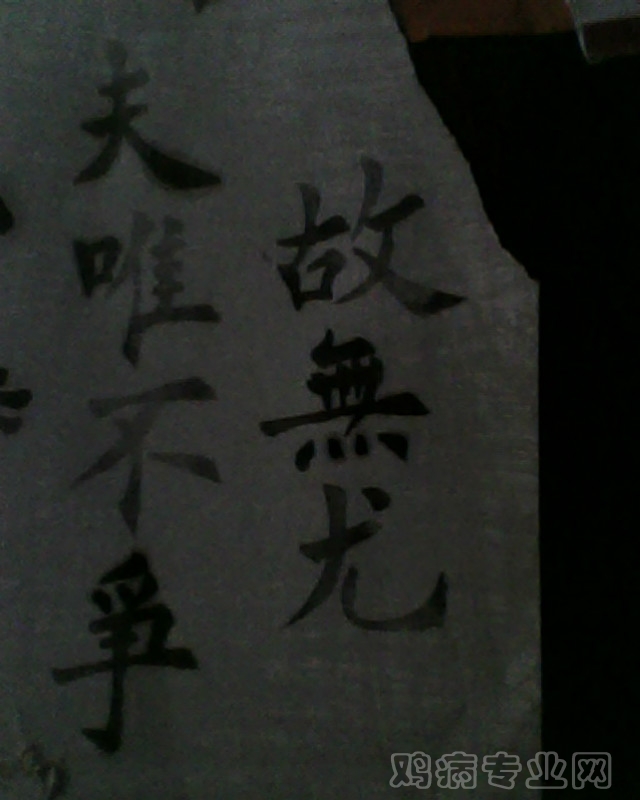 夫唯不爭
故無尤
鸡病专业网